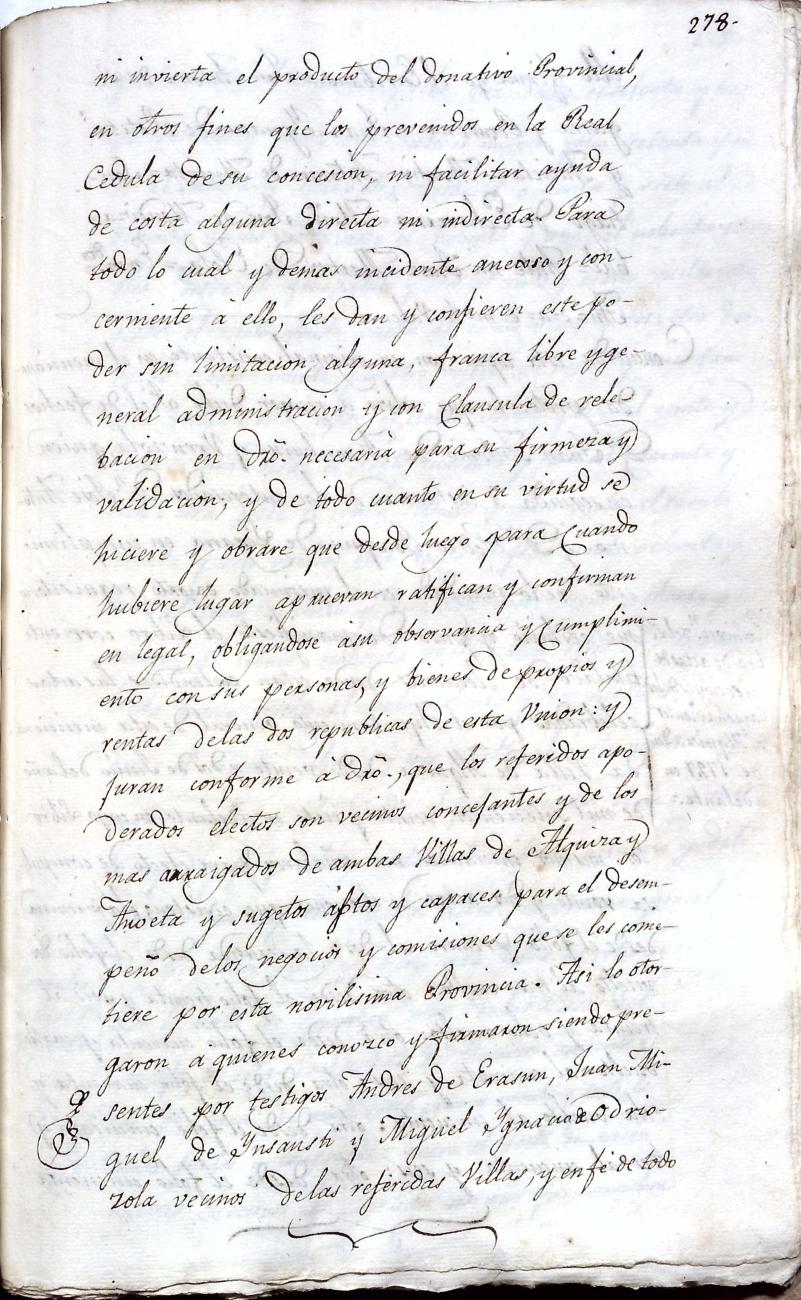 278.
ni invierta el producto del donativo Provincial,
en otros fines que los prevenidos en la Real
Cedula de su concesion, ni facilitar ayuda
de costa alguna directa ni indirecta. Para
todo lo cual y demas incidente anexso y con-
cerniente á ello, les dan y confieren este po-
der sin limitacion alguna, franca libre y ge-
neral administracion y con Clausula de rele-
bacion en dro. necesaria para su firmeza y
validacion, y de todo cuanto en su virtud se
hiciere y obrare que desde luego para cuando
hubiere lugar aprueran ratifican y confirman
en legal, obligandose á su observancia y cumplimi-
ento con sus personas, y bienes de propios y
rentas de las dos republicas de esta Vnion: y
juran conforme á dro., que los referidos apo-
derados electos son vecinos concejantes y de los
mas arraigados de ambas Villas de Alquiza y
Anoeta y sugetos aptos y capaces para el desem-
peño de los negocios y comisiones que se les come-
tiere por esta novilisima Provincia. Asi lo otor-
garon á quienes conozco y firmaron siendo pre-
sentes por testigos Andres de Erasun, Juan Mi-
guel de Ynsausti y Miguel Ygnacio de Odrio-
zola vecinos de las referidas Villas, y en fé de todo